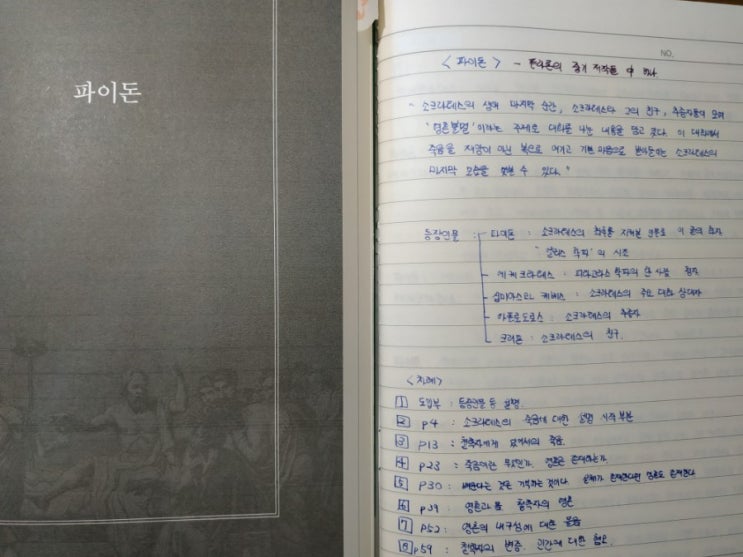 파이돈
NO.
< 파이돈 > - 플라톤의 중기 저작들 中 하나
" 소크라테스의 생애 마지막 순간, 소크라테스와 그의 친구, 추종자들이 모여
'영혼불멸' 이라는 주제로 대화를 나눈 내용을 담고 있다. 이 대화에서
죽음을 재앙이 아닌 복으로 여기고 기쁜 마음으로 받아들이는 소크라테스의
마지막 모습을 엿볼 수 있다. "
등장인물 - 파이돈 : 소크라테스의 최후를 지켜본 인물로 이 글의 화자
" 엘리스 학파 " 의 시조
- 에케크라테스 : 피타고라스 학파의 한 사람 청자
- 심미아스와 케베스 : 소크라테스의 주요 대화 상대자
- 아폴로도로스 : 소크라테스의 추종자
- 크리톤 : 소크라테스의 친구.
< 차례 >
1 도입부 : 등장인물 등 설명.
2 p4 : 소크라테스의 죽음에 대한 설명 시작 부분
3 p13 : 철학자에게 있어서의 죽음
4 p23 : 죽음이란 무엇인가. 영혼은 존재하는가
5 p30 : 배운다는 것은 기억하는 것이다. 존재한다면 영혼도 존재한다
6 p39 영혼과 몸 철학자의 영혼
7 p52 : 영혼의 내구성에 대한 물음
8 p59 : 철학자의 변증. 인간에 대한 혐오.